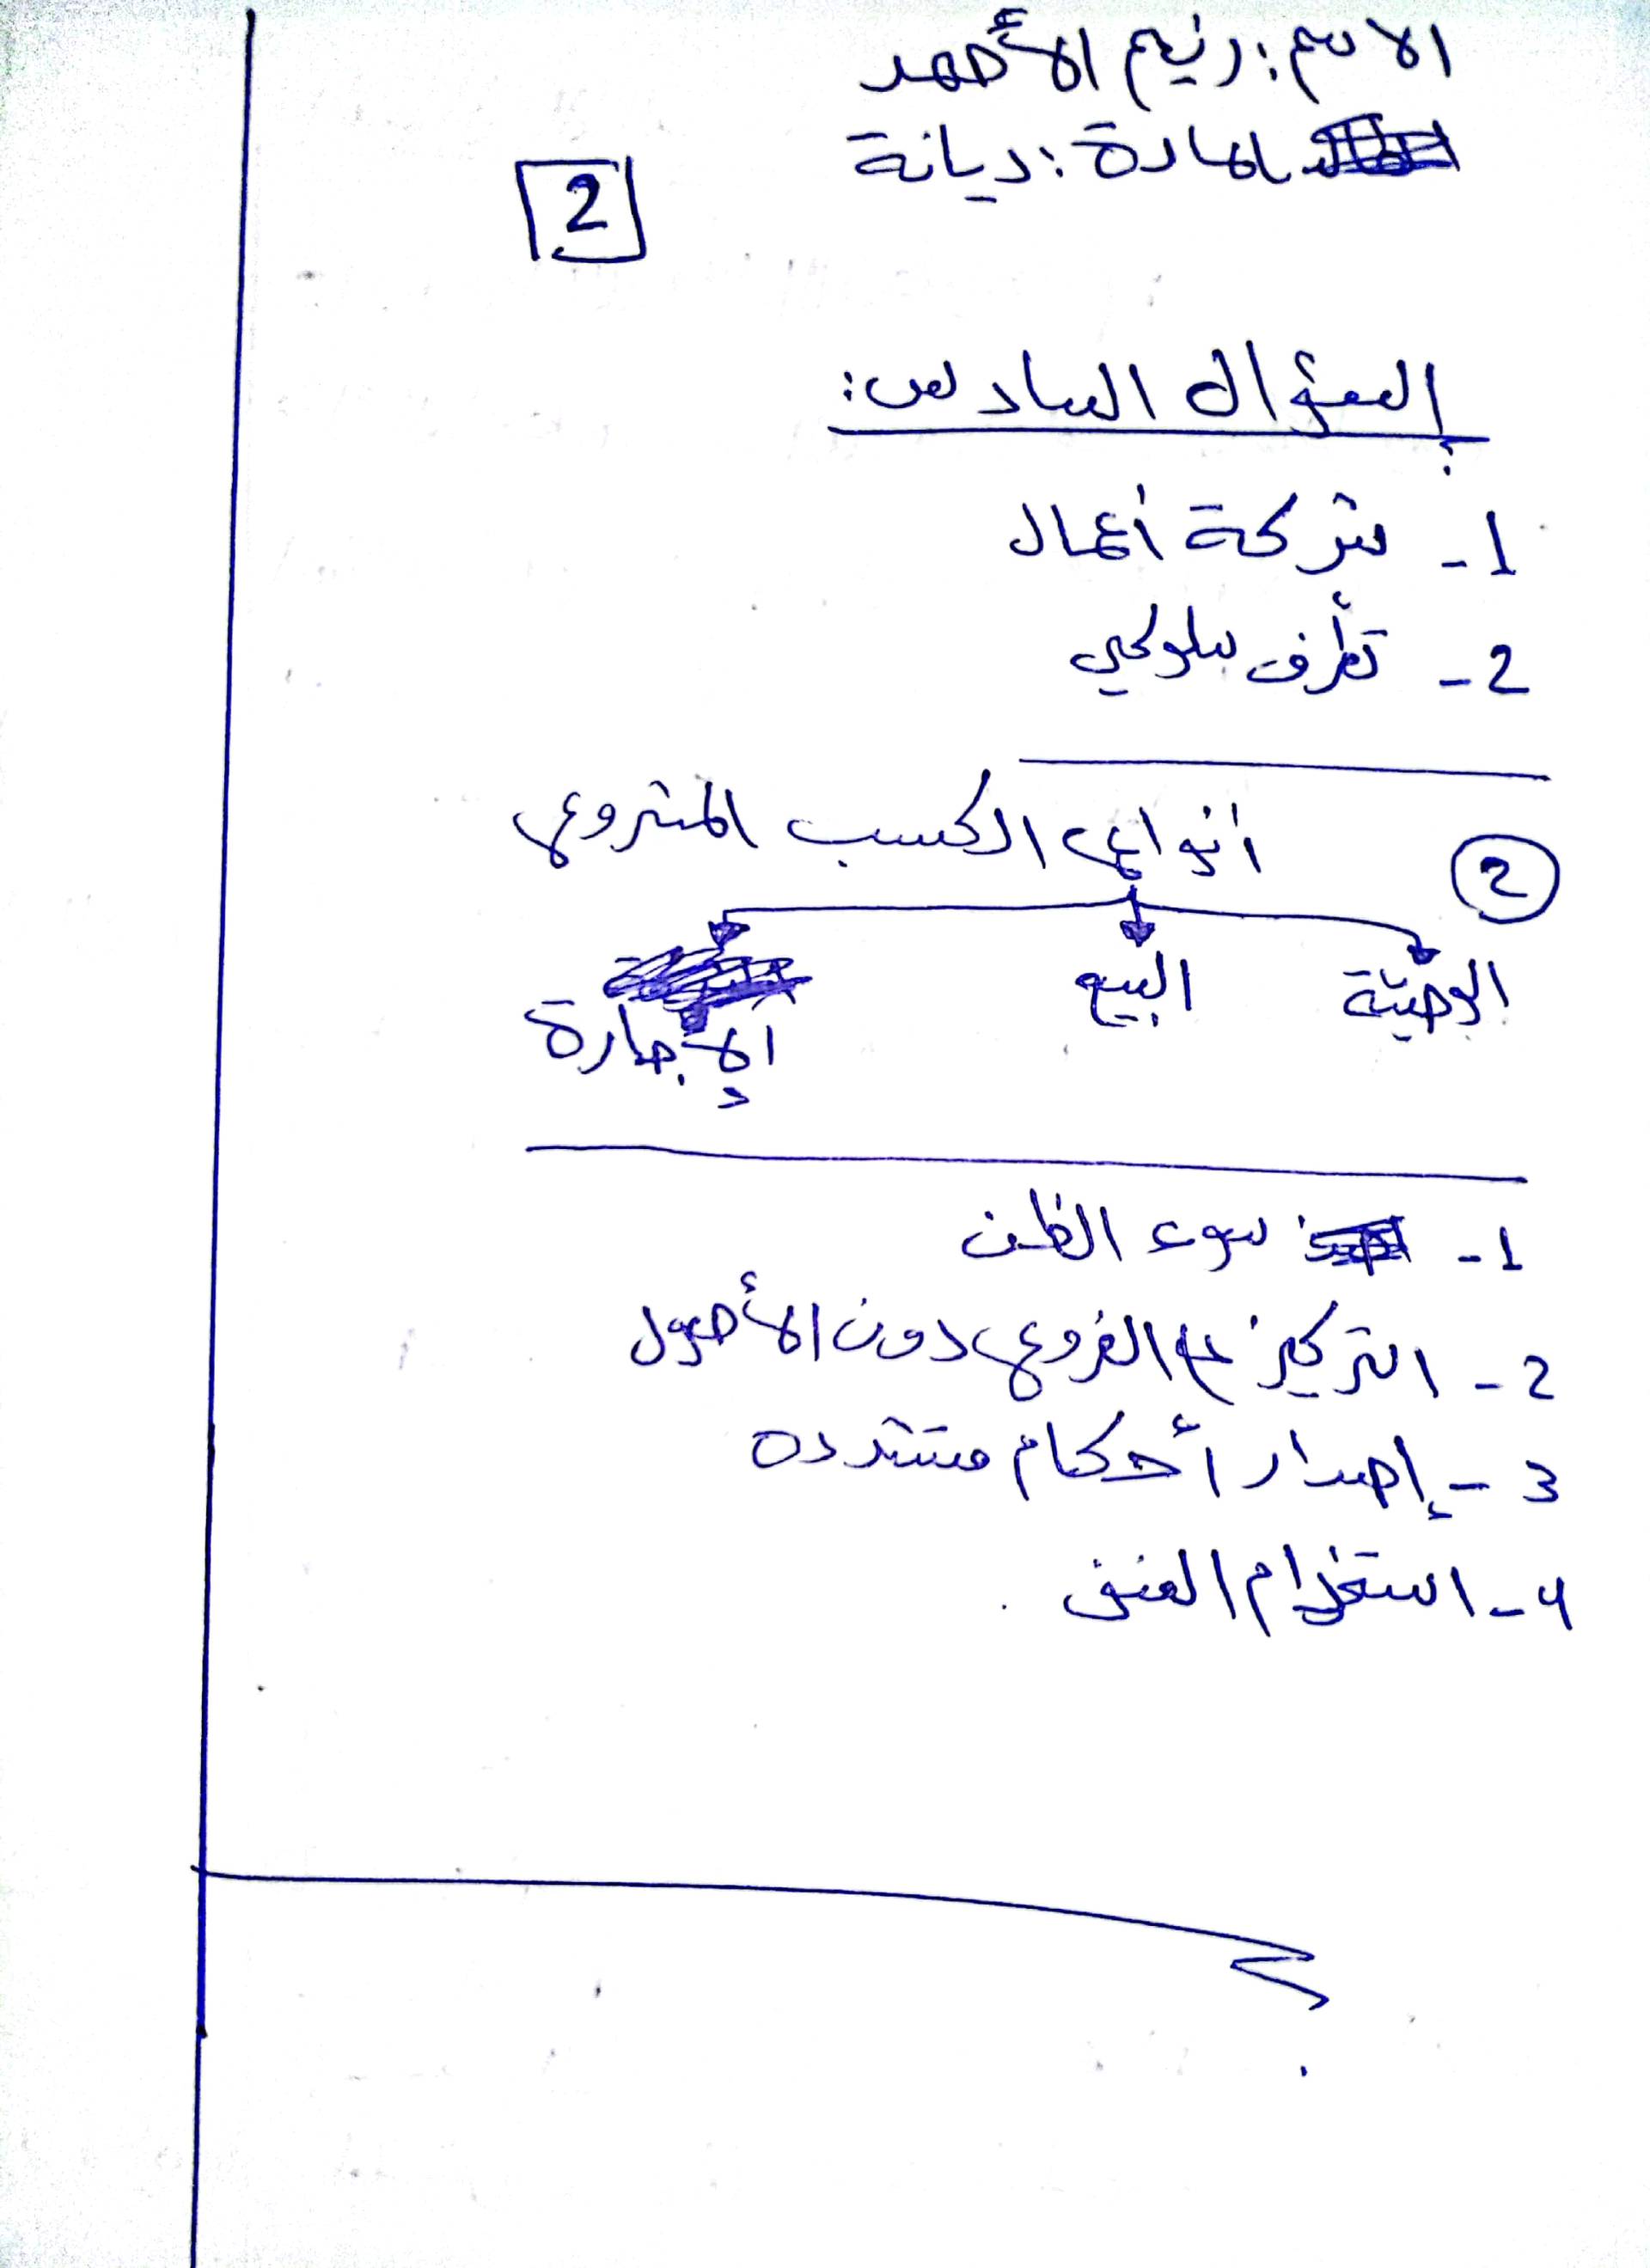 الاسم: رنيم الأحمد
المادة: ديانة
2
السؤال السادس:
1- شركة أعمال
2- تطرف سلوكي
2
أنواع الكسب المشروع
الوصية البيع الإجارة
1- سوء الظن
2- التركيز ع الفروع دون الأصول
3- إصدار أحكام متشدده
4- استخدام العنف